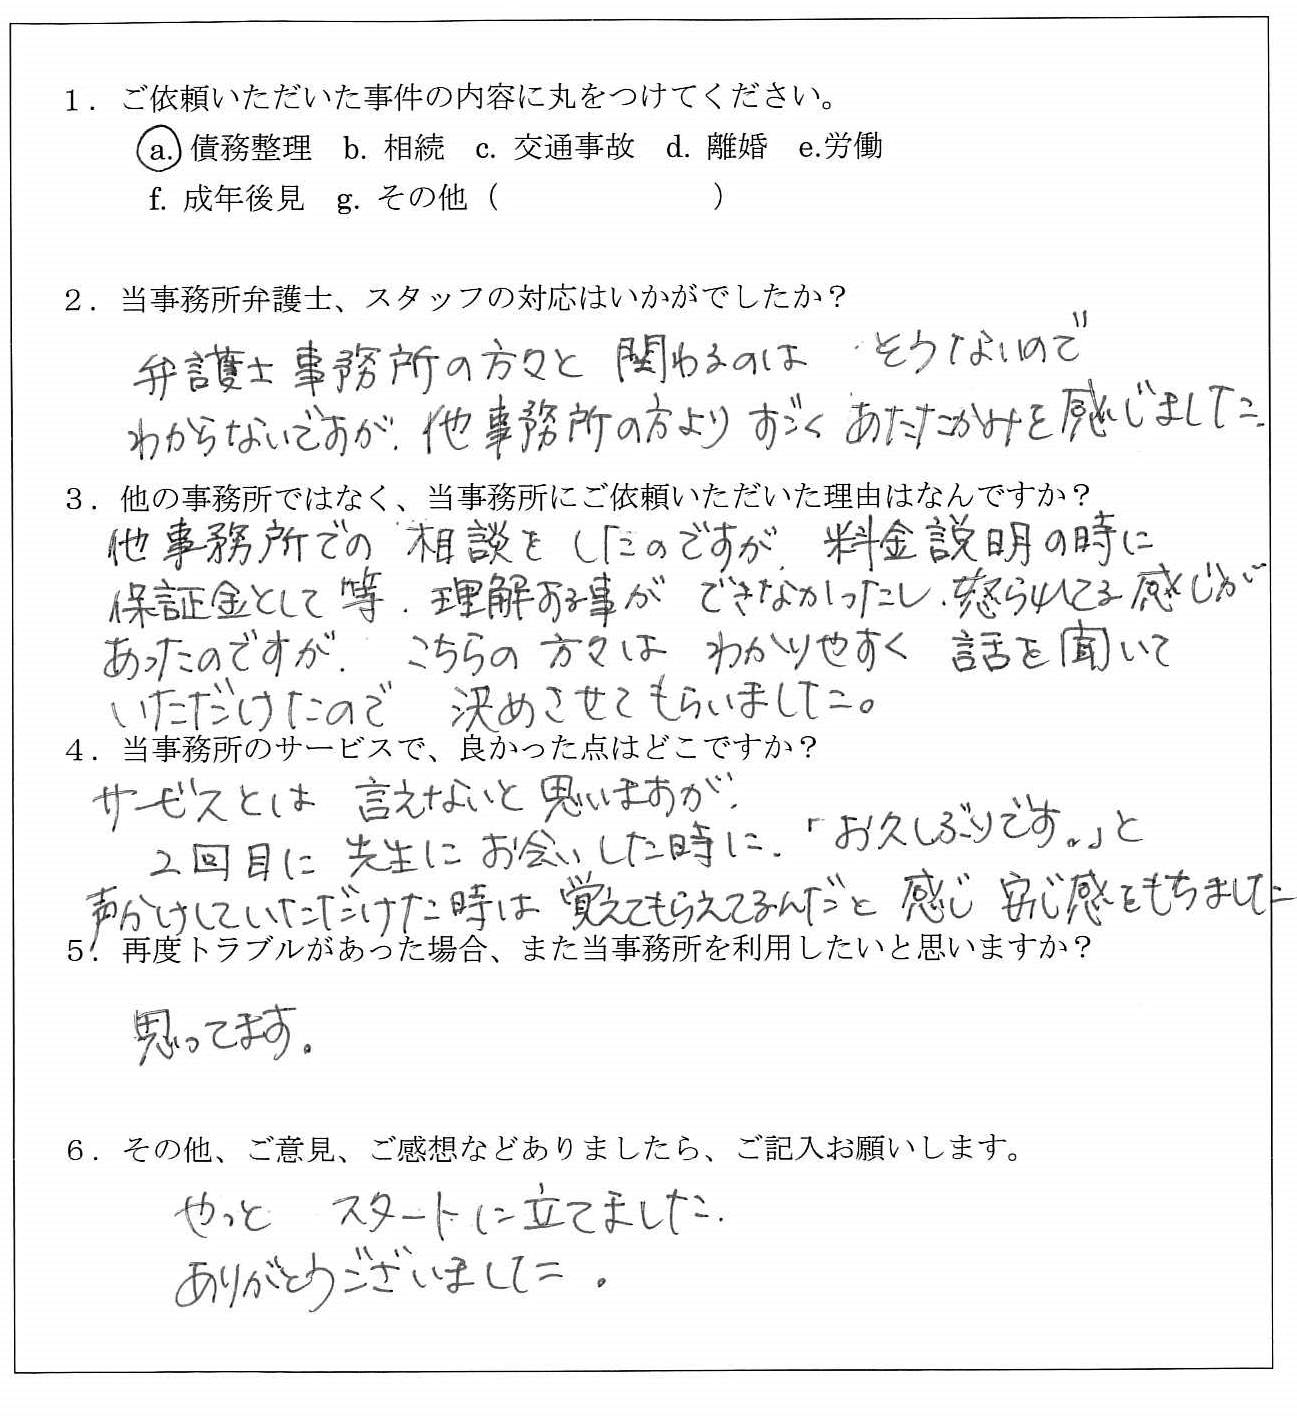 １．ご依頼いただいた事件の内容に丸をつけてください。
a. 債務整理　b. 相続　c. 交通事故　d. 離婚　e.労働
f. 成年後見　g. その他（　　　　　　　）
２．当事務所弁護士、スタッフの対応はいかがでしたか？
弁護士事務所の方々と 関わるのは そうないので
わからないですが、他事務所の方より すごく あたたかみを感じました。
３．他の事務所ではなく、当事務所にご依頼いただいた理由はなんですか？
他事務所での 相談を したのですが、料金説明の時に
保証金として等、理解する事が できなかったし、怒られてる感じが
あったのですが、こちらの 方々は わかりやすく 話を聞いて
いただけたので 決めさせてもらいました。
４．当事務所のサービスで、良かった点はどこですか？
サービスとは 言えないと思いますが、
2回目に 先生に お会いした時に、「お久しぶりです。」と
声かけしていただけた時は 覚えてもらえてるんだと 感じ 安心感をもちました
５．再度トラブルがあった場合、また当事務所を利用したいと思いますか？
思ってます。
６．その他、ご意見、ご感想などありましたら、ご記入お願いします。
やっと スタートに立てました。
ありがとうございました。